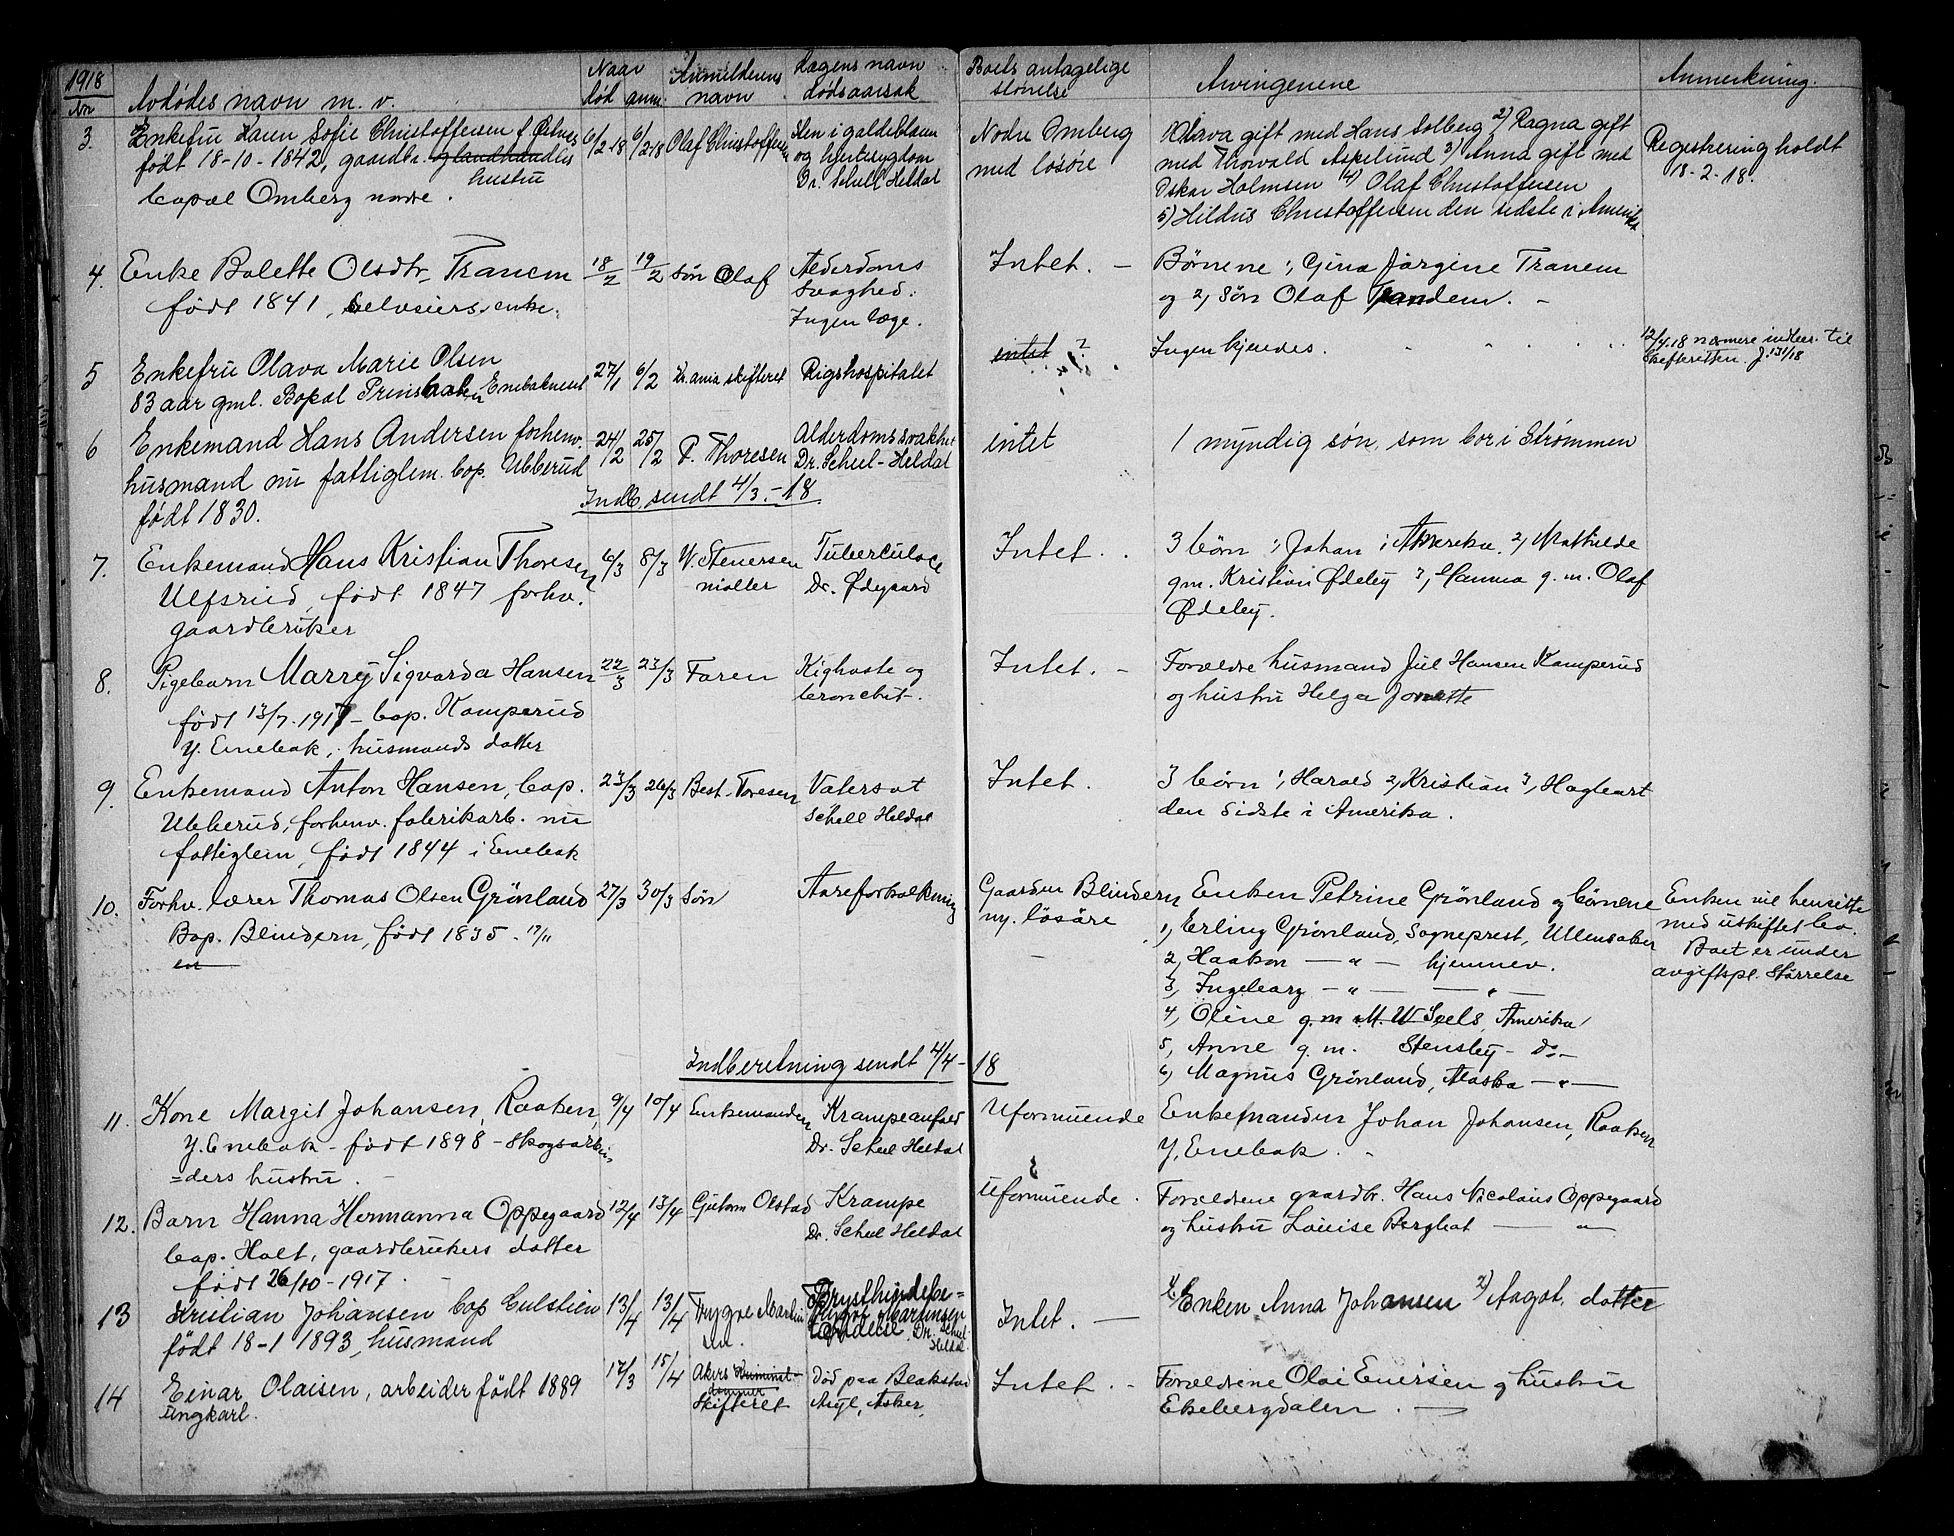 1918
Nr
Avdødes navn m. v.
Naar
død anm.
Anmelderens
navn
Lægens navn
dødsaarsak
Boets antagelige
størrelse
Arvingene
Anmerkning.
3. Enkefru Karen Sofie Christoffersen f.
født 18-10-1842, gaardbr. og landhandlers
hustru
bopæl Omberg nordre.
6/2 18 6/2 18 Olaf Christoffersen
Sten i galdeblæren
og hjertesygdom
Dr. Schell Heldal
Nodre Omberg
med løsøre
1) Olava gift med Hans Solberg 2) Ragna gift
med Thorvald Askelund 3) Anna gift med
Oskar Holmsen 4) Olaf Christoffersen
5) Hildus Christoffersen den sidste i Amerika
Registrering holdt
18-2-18.
4. Enke Bolette Olsdtr. Tranem
født 1841, selveiers enke.
18/2 19/2 Søn Olaf
Alderdoms
svaghed.
Ingen læge.
Intet. –
Børnene 1, Gina Jørgine Tranem
og 2, søn Olaf Trandem. –
5 Enkefru Olava Marie Olsen
83 aar gml. Bopæl Enebakneset
27/1 6/2 Kr.ania skifteret Rigshospitalet
intet ?
Ingen kjendes.
12/4 18 nærmere indber. til
Skifteretten. J. 131/18
6 Enkemand Hans Andersen forhenv.
husmand nu fattiglem. bop. Ubberud
født 1830.
24/2 25/2 P. Thoresen
Alderdomssvakhet
Dr. Schell-Heldal
Indb. sendt 4/3.-18.
intet
1 myndig søn, som bor i Strømmen
7. Enkemand Hans Kristian Thoresen
Ulfsrud, født 1847 forhv.
gaardbruker
6/3 8/3 W. Stenersen
møller
Tuberculose
Dr. Ødegaard
Intet. .
3 børn 1, Johan i Amerika. 2, Mathilde
gm. Kristian Ødeby 3, Hanna g. m. Olaf
Ødeby.
8. Pigebarn Marry Sigvarda Hansen
født 13/7. 1917 – bop. Kamperud
Y. Enebak, husmands datter
22/3 23/3 Faren
Kighoste og
bronchit.
Intet. –
Forældre husmand Jul Hansen Kamperud
og hustru Helga Jonette
9. Enkemand Anton Hansen, bop.
Ubberud, forhenv. fabrikarb. nu
fattiglem, født 1844 i Enebak
23/3 26/3 Best. Toresen
Vatersot
Schell Heldal
Intet.
3 børn 1, Harald 2, Kristian 3, Hagbart
den sidste i Amerika.
10. Forhv. lærer Thomas Olsen Grønland
Bop. Blindern, født 1835. 17/11
en
27/3 30/3 Søn
Aareforkalkning
Gaarden Blindern
og løsøre
–
Enken Petrine Grønland og børnene
1, Erling Grønland, Sogneprest, Ullensaker
2, Haakon – " – hjemmev.
3, Ingeborg – " – – " –
4, Oline g. m. M. W. Seels, Amerika
5, Anne g. m. Stensby – do –
6, Magnus Grønland, Alaska – " –
Enken vil hensitte
med uskiftet bo.
Boet er under
avgiftspl. størrelse
Indberetning sendt 4/4 – 18
11. Kone Margit Johansen, Raaken,
Y. Enebak – født 1898 – skogsarbei-
=ders hustru.
9/4 10/4 Enkemanden
Krampeanfald
Dr. Schell Heldal
Uformuende
Enkemanden Johan Johansen, Raaken
Y. Enebak.
12. Barn Hanna Hermanna Oppegaard
bop. Holt, gaardbrukers datter
født 26/10 – 1917.
12/4 13/4 Gutorm Olstad
Krampe
Dr. Schell Heldal
Uformuende.
Forældrene gaardbr. Hans Nicolaus Oppegaard
og hustru Louise Berghat – " –
13 Kristian Johansen bop
født 18-1 1893, husmand
13/4 13/4 Trygve Martin
sen.
Brysthindebe=
tændelse. Dr. Schell
Heldal.
Intet. –
1) Enken Anna Johansen 2) Aagot, datter
14 Einar Olaisen, arbeider født 1889
Ungkarl.
17/3 15/4 Akers Kriminal-
dommer
Skifteret
Død paa Blakstad
Asyl, Asker.
Intet. –
Forældrene Olai Enersen og hustru
Ekebergdalen. –